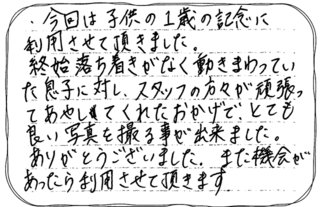 ・今回は子供の1歳の記念に
利用させて頂きました。
終始落ち着きがなく動きまわってい
た息子に対し、スタッフの方々が頑張っ
てあやしてくれたおかげで、とても
良い写真を撮る事が出来ました。
ありがとうございました。また機会が
あったら利用させて頂きます